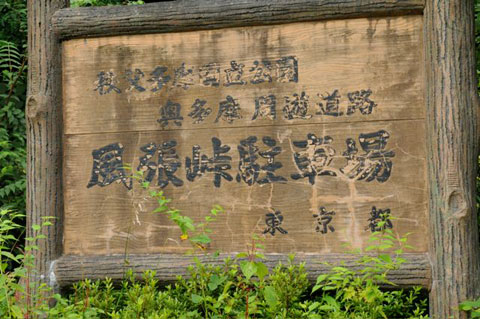 秩父多摩国立公園
奥多摩周遊道路
風張峠駐車場
東京都